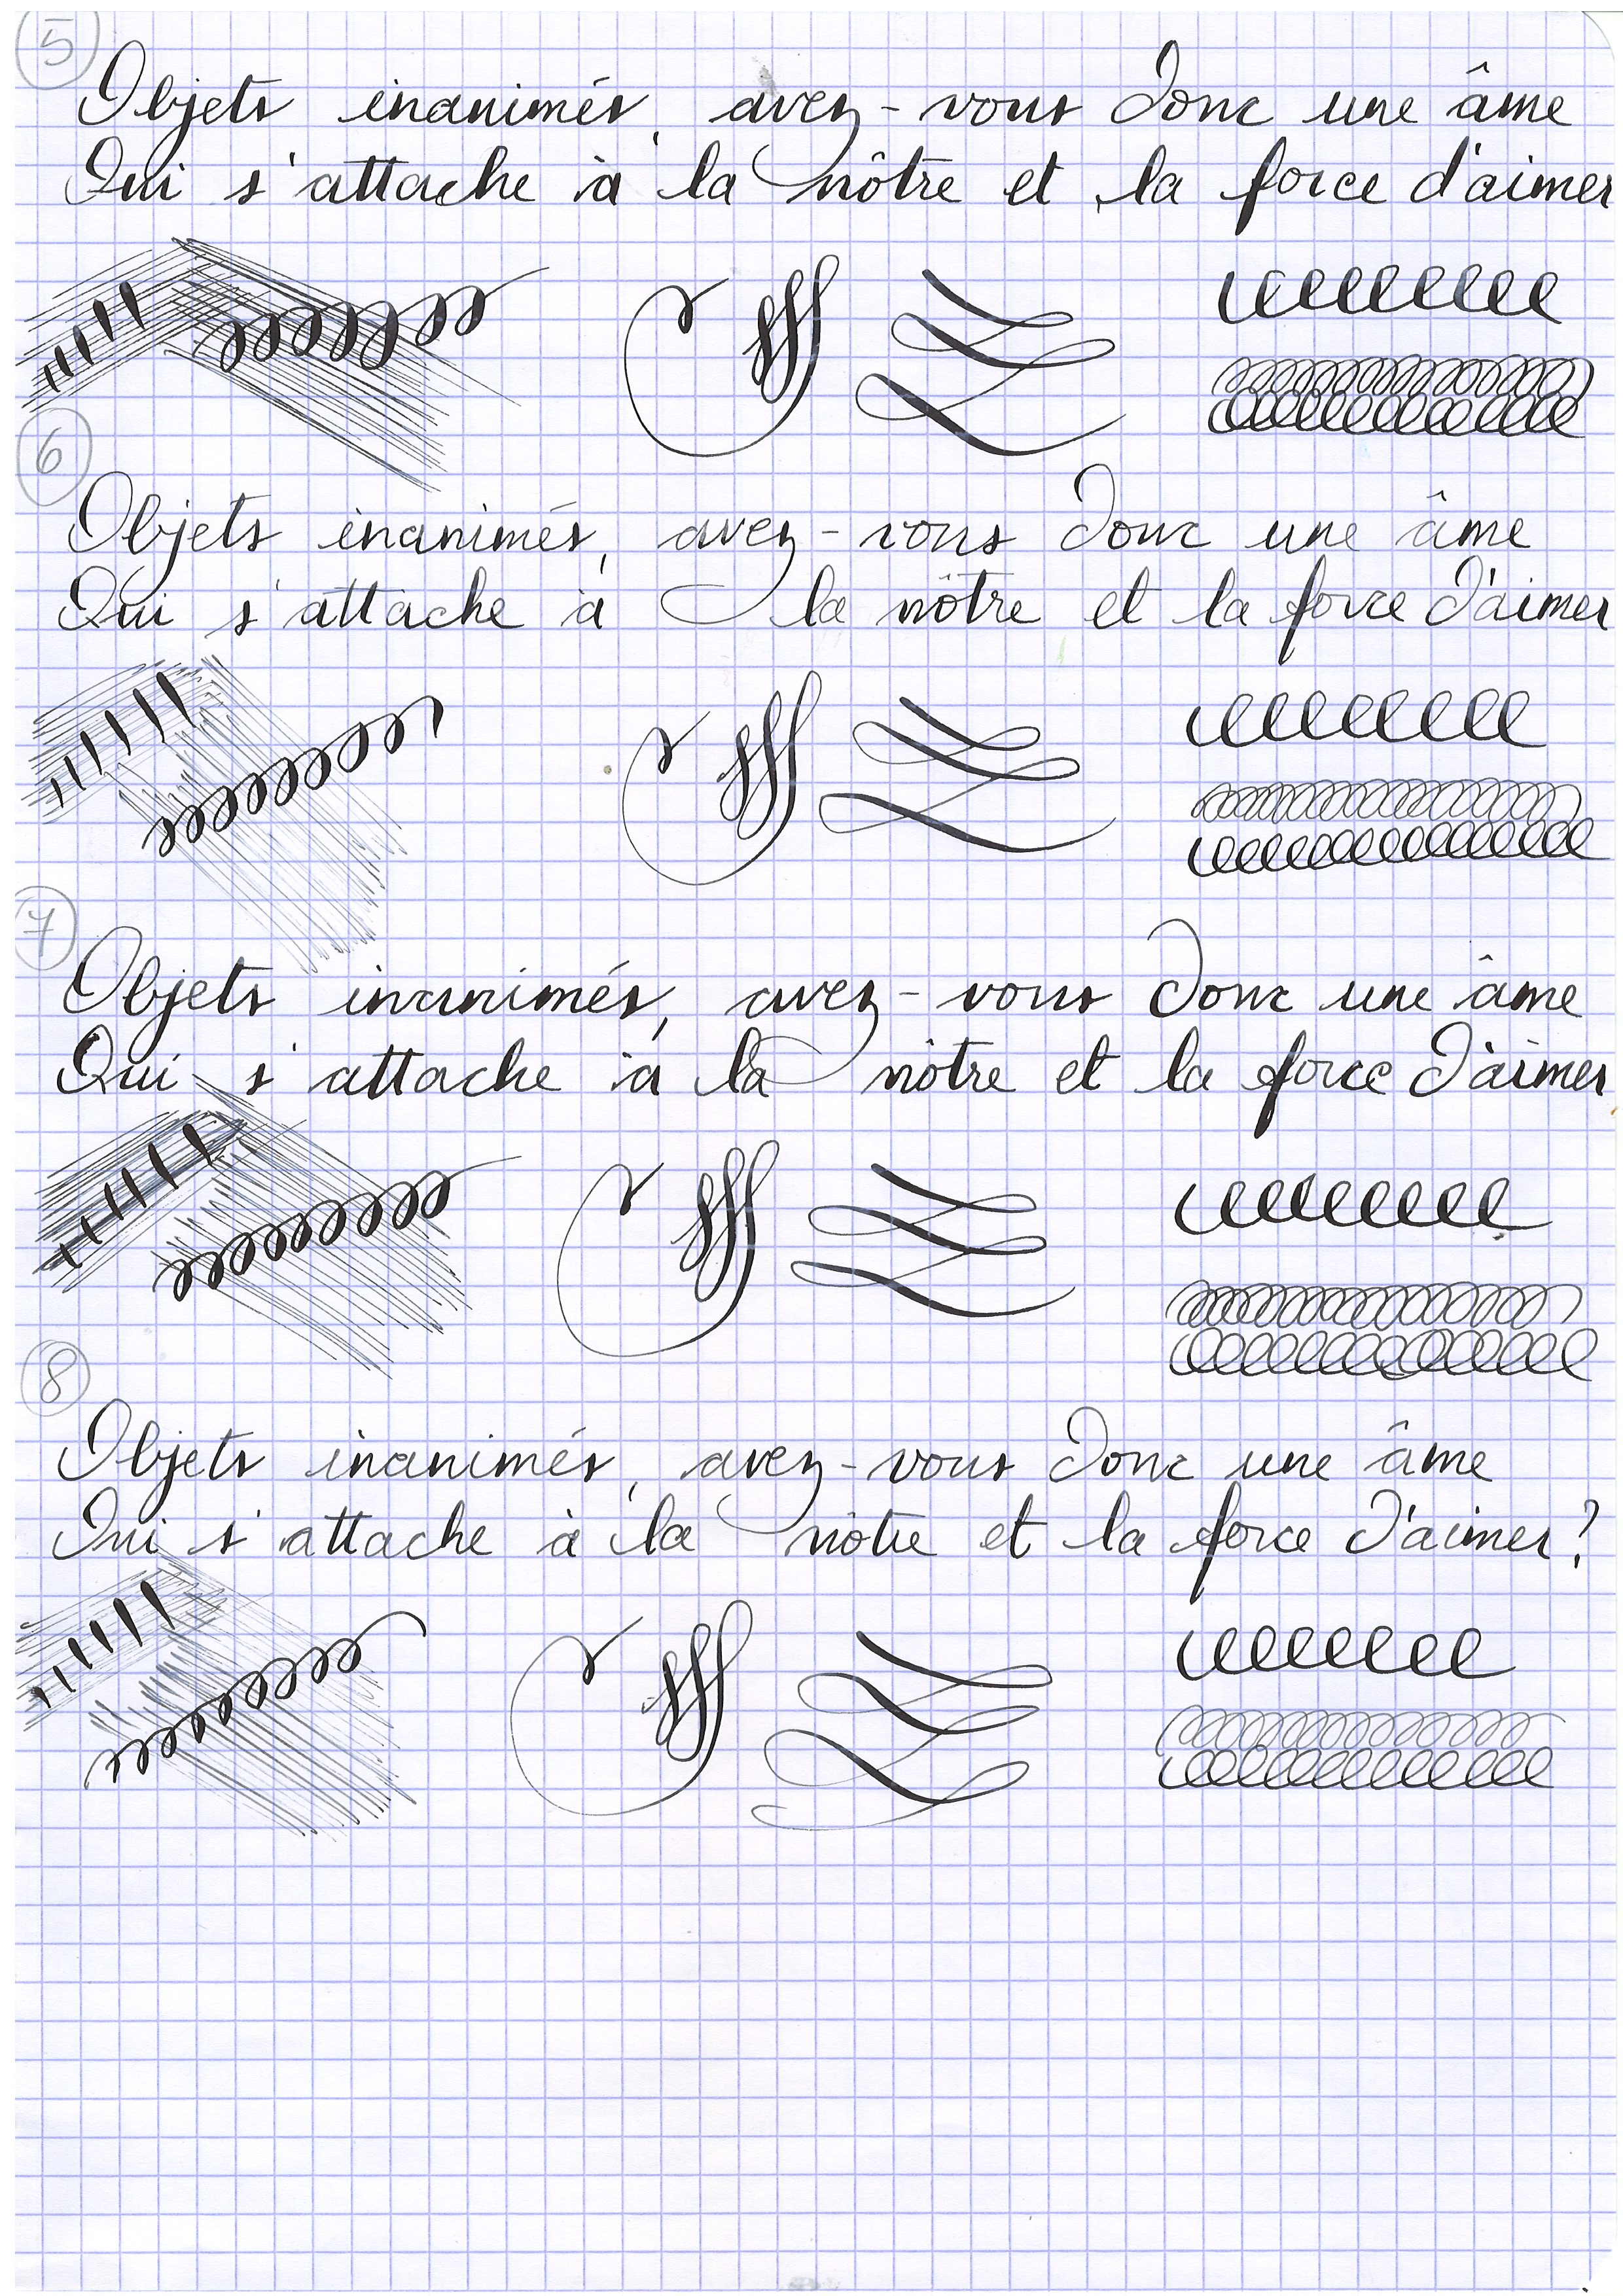 5
Objets inanimés, avez-vous donc une âme
Qui s'attache à la nôtre et la force d'aimer
6
Objets inanimés, avez-vous donc une âme
Qui s'attache à la nôtre et la force d'aimer
7
Objets inanimés, avez-vous donc une âme
Qui s'attache à la nôtre et la force d'aimer
8
Objets inanimés, avez-vous donc une âme
Qui s'attache à la nôtre et la force d'aimer?